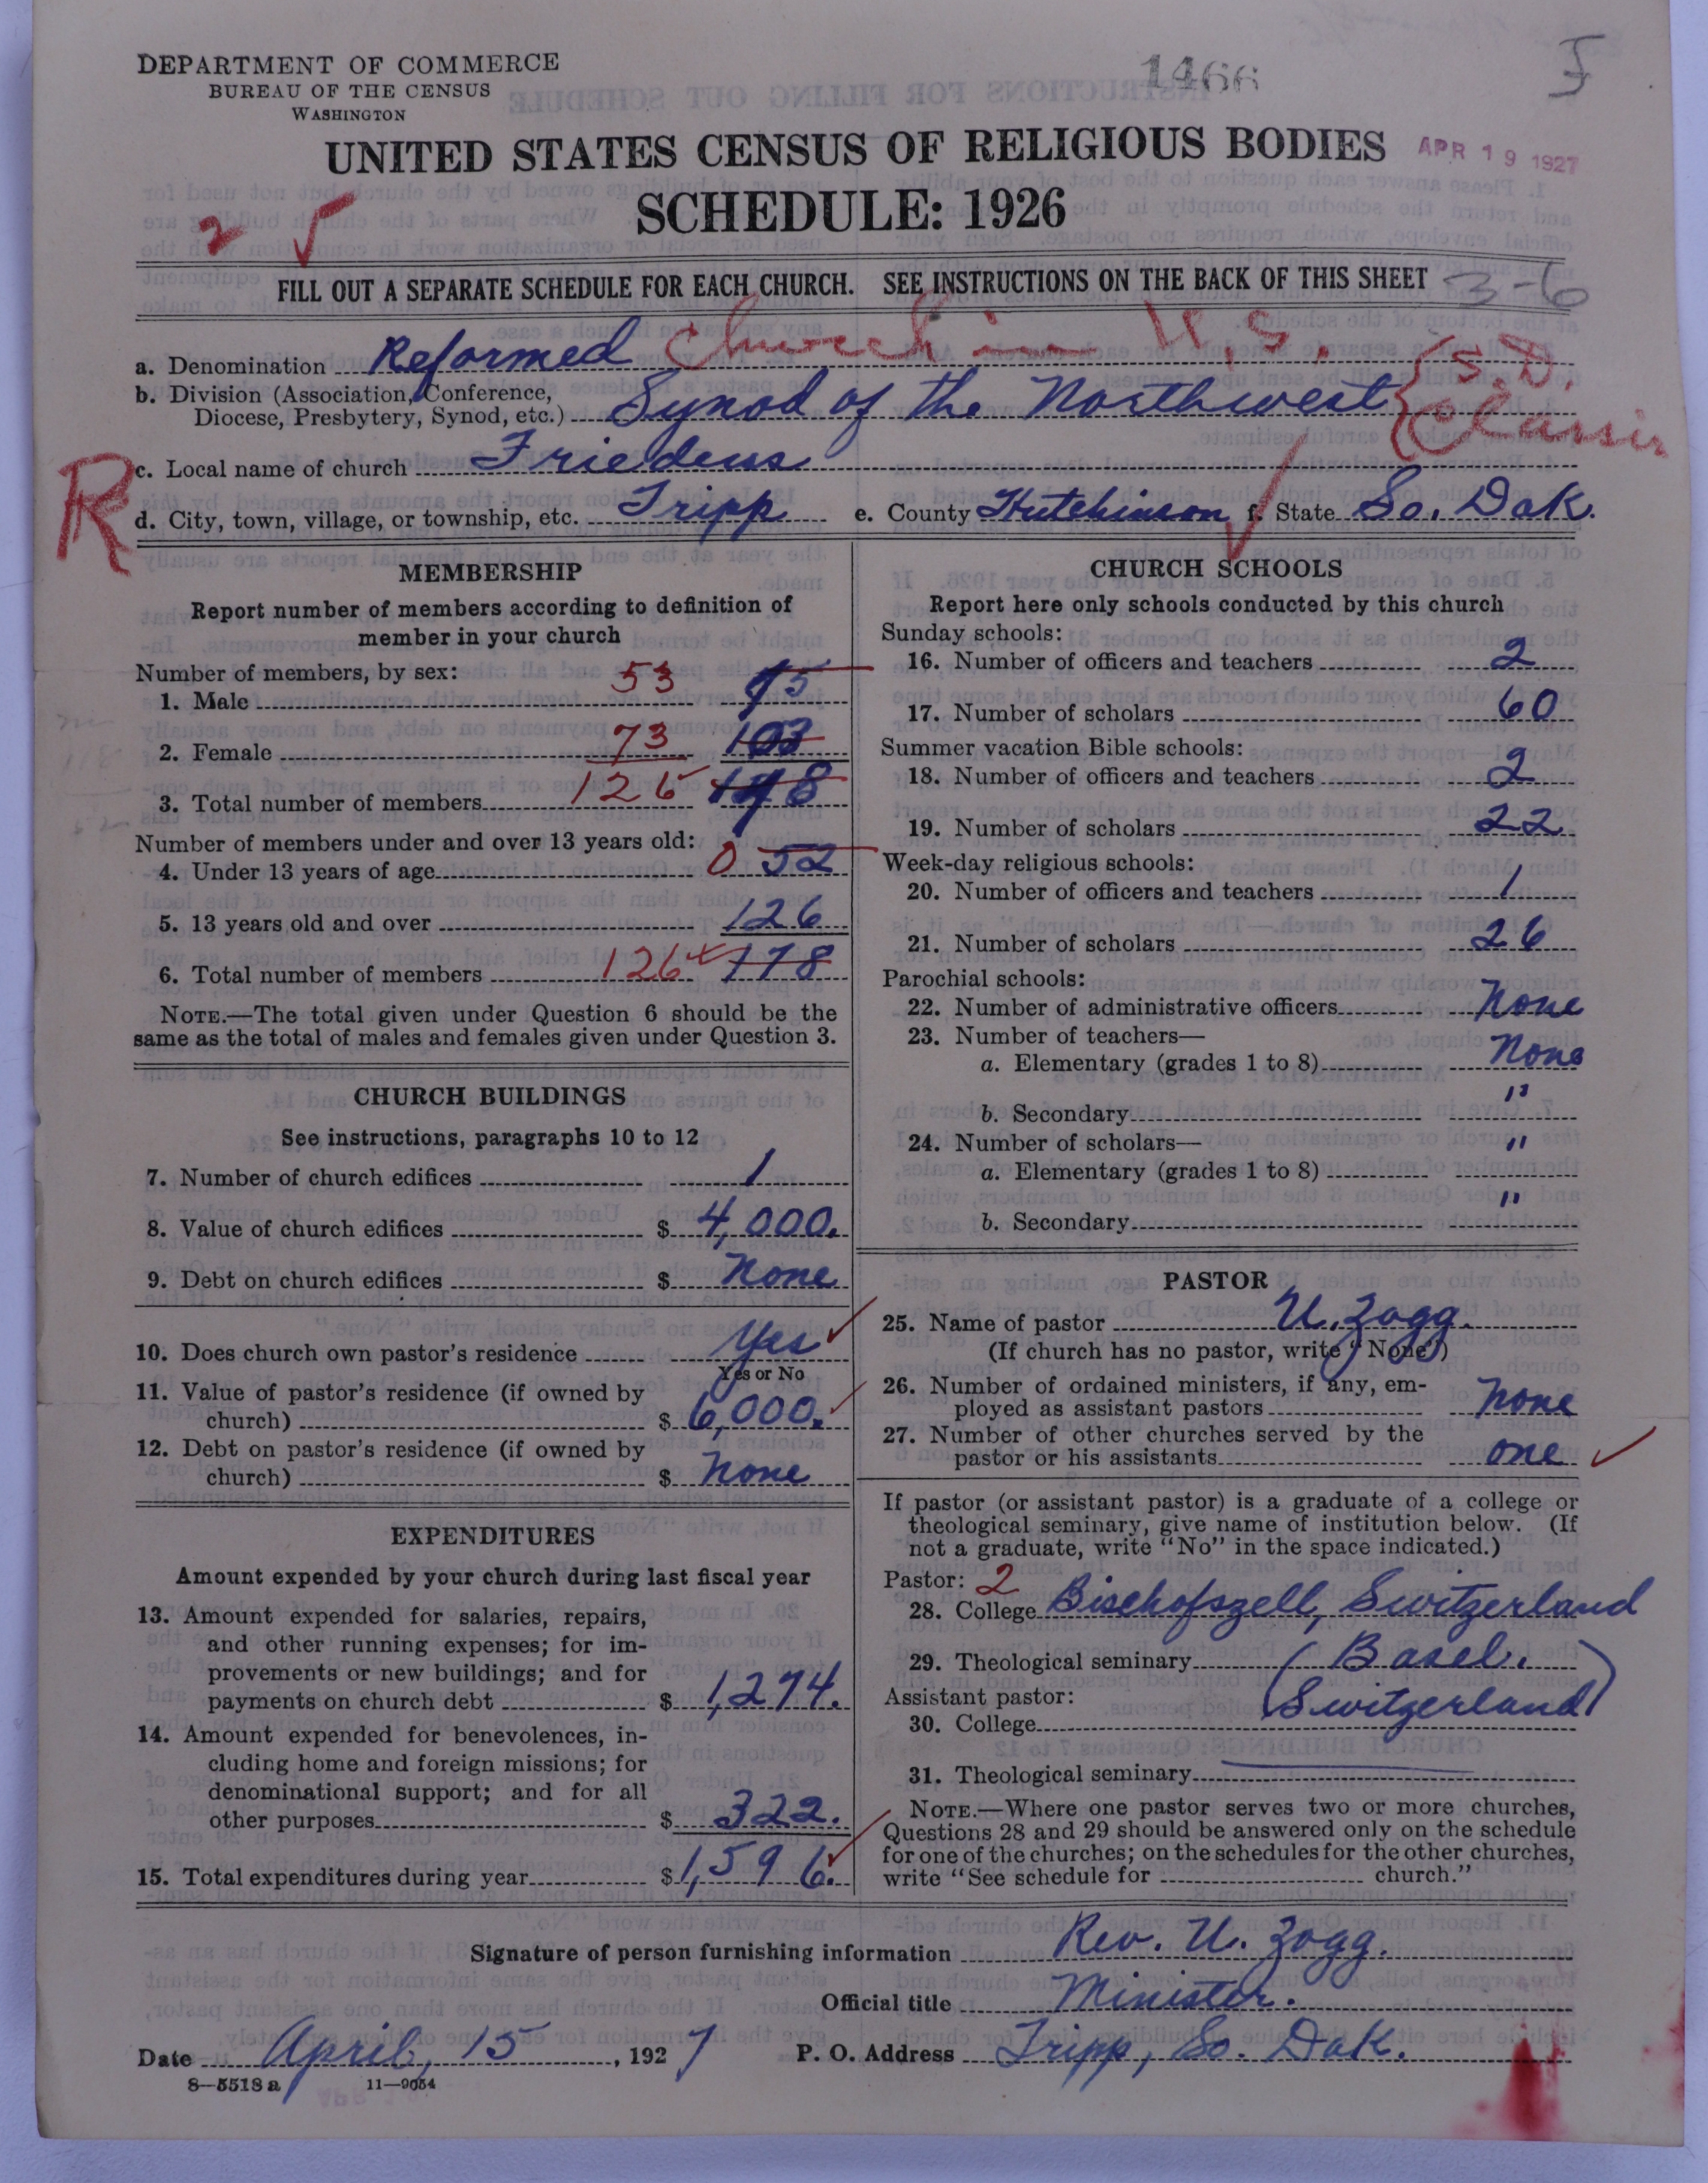 DEPARTMENT OF COMMERCE
BUREAU OF THE CENSUS
WASHINGTON
1466
UNITED STATES CENSUS OF RELIGIOUS BODIES
APR 19 1927
SCHEDULE: 1926
2 √
FILL OUT A SEPARATE SCHEDULE FOR EACH CHURCH. SEE INSTRUCTIONS ON THE BACK OF THIS SHEET
3-6
a. Denomination Reformed Church in U.S.
b. Division (Association, Conference,
Diocese, Presbytery, Synod, etc.) Synod of the Northwest {S.D. Classis
R
c. Local name of church Friedens
d. City, town, village, or township, etc. Tripp e. County Hutchinson f. State So. Dak.
MEMBERSHIP
Report number of members according to definition of
member in your church
Number of members, by sex:
1. Male 53 75
2. Female 73 103
3. Total number of members 126 178
Number of members under and over 13 years old:
4. Under 13 years of age 0 52
5. 13 years old and over 126
6. Total number of members 126 178
NOTE.—The total given under Question 6 should be the
same as the total of males and females given under Question 3.
CHURCH BUILDINGS
See instructions, paragraphs 10 to 12
7. Number of church edifices 1
8. Value of church edifices $ 4,000.
9. Debt on church edifices $ None
10. Does church own pastor's residence Yes
Yes or No
11. Value of pastor's residence (if owned by
church) $ 6,000.
12. Debt on pastor's residence (if owned by
church) $ None
EXPENDITURES
Amount expended by your church during last fiscal year
13. Amount expended for salaries, repairs,
and other running expenses; for im-
provements or new buildings; and for
payments on church debt $ 1,274.
14. Amount expended for benevolences, in-
cluding home and foreign missions; for
denominational support; and for all
other purposes $ 322.
15. Total expenditures during year $ 1,596.
CHURCH SCHOOLS
Report here only schools conducted by this church
Sunday schools:
16. Number of officers and teachers 2
17. Number of scholars 60
Summer vacation Bible schools:
18. Number of officers and teachers 2
19. Number of scholars 22
Week-day religious schools:
20. Number of officers and teachers 1
21. Number of scholars 26
Parochial schools:
22. Number of administrative officers None
23. Number of teachers—
a. Elementary (grades 1 to 8) None
b. Secondary "
24. Number of scholars—
a. Elementary (grades 1 to 8) "
b. Secondary "
PASTOR
25. Name of pastor U. Zogg.
(If church has no pastor, write "None")
26. Number of ordained ministers, if any, em-
ployed as assistant pastors None
27. Number of other churches served by the
pastor or his assistants one
If pastor (or assistant pastor) is a graduate of a college or
theological seminary, give name of institution below. (If
not a graduate, write "No" in the space indicated.)
Pastor: 2
28. College Bischofszell, Switzerland
29. Theological seminary (Basel.
Assistant pastor: Switzerland)
30. College
31. Theological seminary
NOTE.—Where one pastor serves two or more churches,
Questions 28 and 29 should be answered only on the schedule
for one of the churches; on the schedules for the other churches,
write "See schedule for church."
Signature of person furnishing information Rev. U. Zogg.
Official title Minister.
Date April, 15, 1927 P. O. Address Tripp, So. Dak.
8—5518 a 11—9054